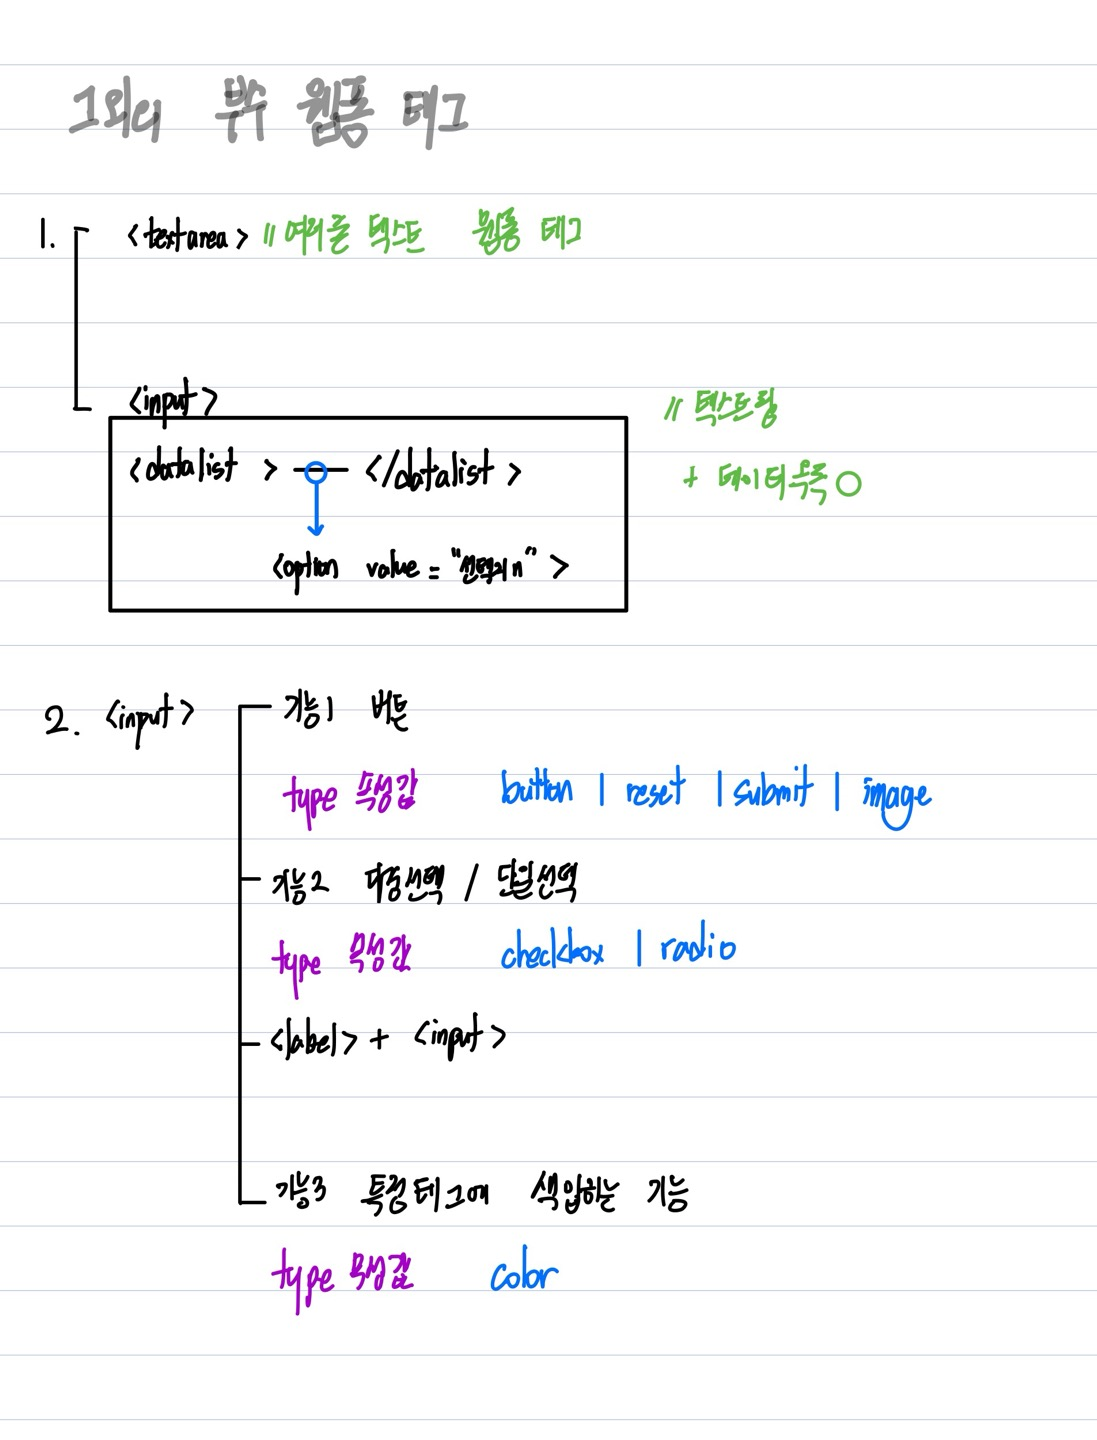 그외의 부수 웹폼 태그
1. <textarea> // 여러줄 텍스트 웹폼 태그
<input> // 텍스트필
<datalist > — </datalist > + 데이터목록 ○
<option value = "선택지n" >
2. <input> 기능1 버튼
type 속성값 button | reset | submit | image
기능2 다중선택 / 단일선택
type 속성값 checkbox | radio
<label> + <input>
기능3 특정태그에 색입히는 기능
type 속성값 color